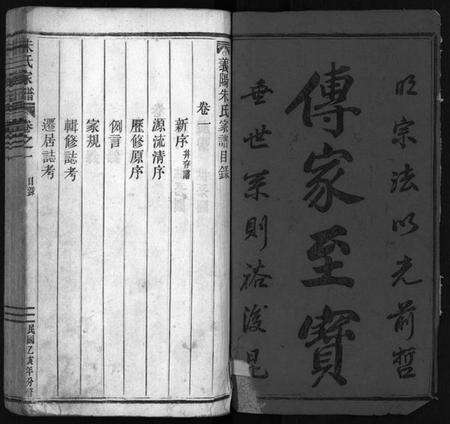 明宗法以光前哲
傳家至寶
垂世系則裕後昆
義陽朱氏家譜目錄
卷一
新序
源流清序
歷修原序
例言
家規
輯修誌考
遷居誌考
朱氏家譜
卷之一
目錄
民國乙亥年